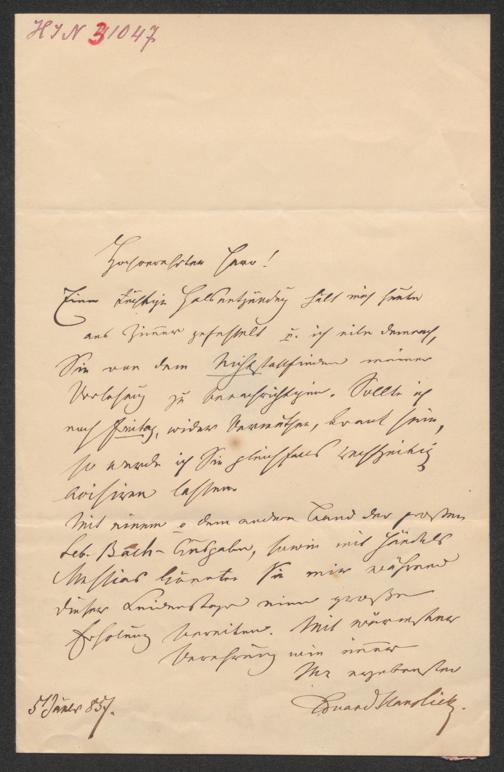 HIN 31047
Hochverehrter Herr!
Eine tüchtige Halsentzündung hält mich heute
ans Zimmer gefesselt u. ich eile demnach,
Sie von dem Nichtstattfinden meiner
Vorlesung zu benachrichtigen. Sollte ich
noch Freitag, wider Vermuthen, krank sein,
so werde ich Sie gleichfalls rechtzeitig
avisiren lassen.
Mit einem o dem andern Band der großen
Seb. Bach-Ausgabe, sowie mit Händels
Messias könnten Sie mir während
dieser Leidenstage eine große
Erholung bereiten. Mit wärmster
Verehrung wie immer
Ihr ergebenster
5 Jäner 857. Eduard Hanslick.